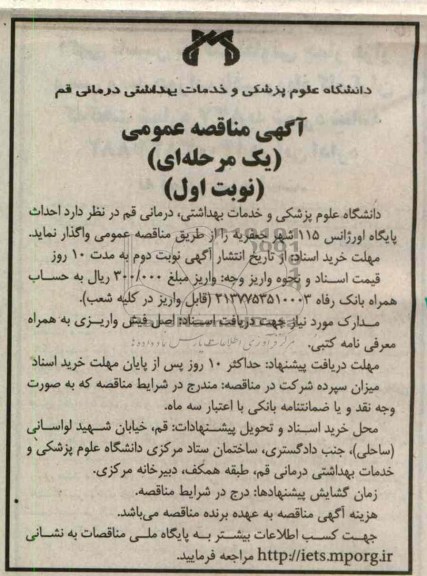 دانشگاه علوم پزشکی و خدمات بهداشتی درمانی قم
آگهی مناقصه عمومی
(یک مرحله‌ای)
(نوبت اول)
دانشگاه علوم پزشکی و خدمات بهداشتی، درمانی قم در نظر دارد احداث
پایگاه اورژانس ۱۱۵ شهر جعفریه را از طریق مناقصه عمومی واگذار نماید.
مهلت خرید اسناد: از تاریخ انتشار آگهی نوبت دوم به مدت ۱۰ روز
قیمت اسناد و نحوه واریز وجه: واریز مبلغ ۳۰۰/۰۰۰ ریال به حساب
همراه بانک رفاه ۲۱۳۷۷۵۳۵۱۰۰۰۳ (قابل واریز در کلیه شعب).
مدارک مورد نیاز جهت دریافت اسناد: اصل فیش واریزی به همراه
معرفی نامه کتبی.
مهلت دریافت پیشنهاد: حداکثر ۱۰ روز پس از پایان مهلت خرید اسناد
میزان سپرده شرکت در مناقصه: مندرج در شرایط مناقصه که به صورت
وجه نقد و یا ضمانتنامه بانکی با اعتبار سه ماه.
محل خرید اسناد و تحویل پیشنهادات: قم، خیابان شهید لواسانی
(ساحلی)، جنب دادگستری، ساختمان ستاد مرکزی دانشگاه علوم پزشکی و
خدمات بهداشتی درمانی قم، طبقه همکف، دبیرخانه مرکزی.
زمان گشایش پیشنهادها: درج در شرایط مناقصه.
هزینه آگهی مناقصه به عهده برنده مناقصه می‌باشد.
جهت کسب اطلاعات بیشتر به پایگاه ملی مناقصات به نشانی
http://iets.mporg.ir مراجعه فرمایید.